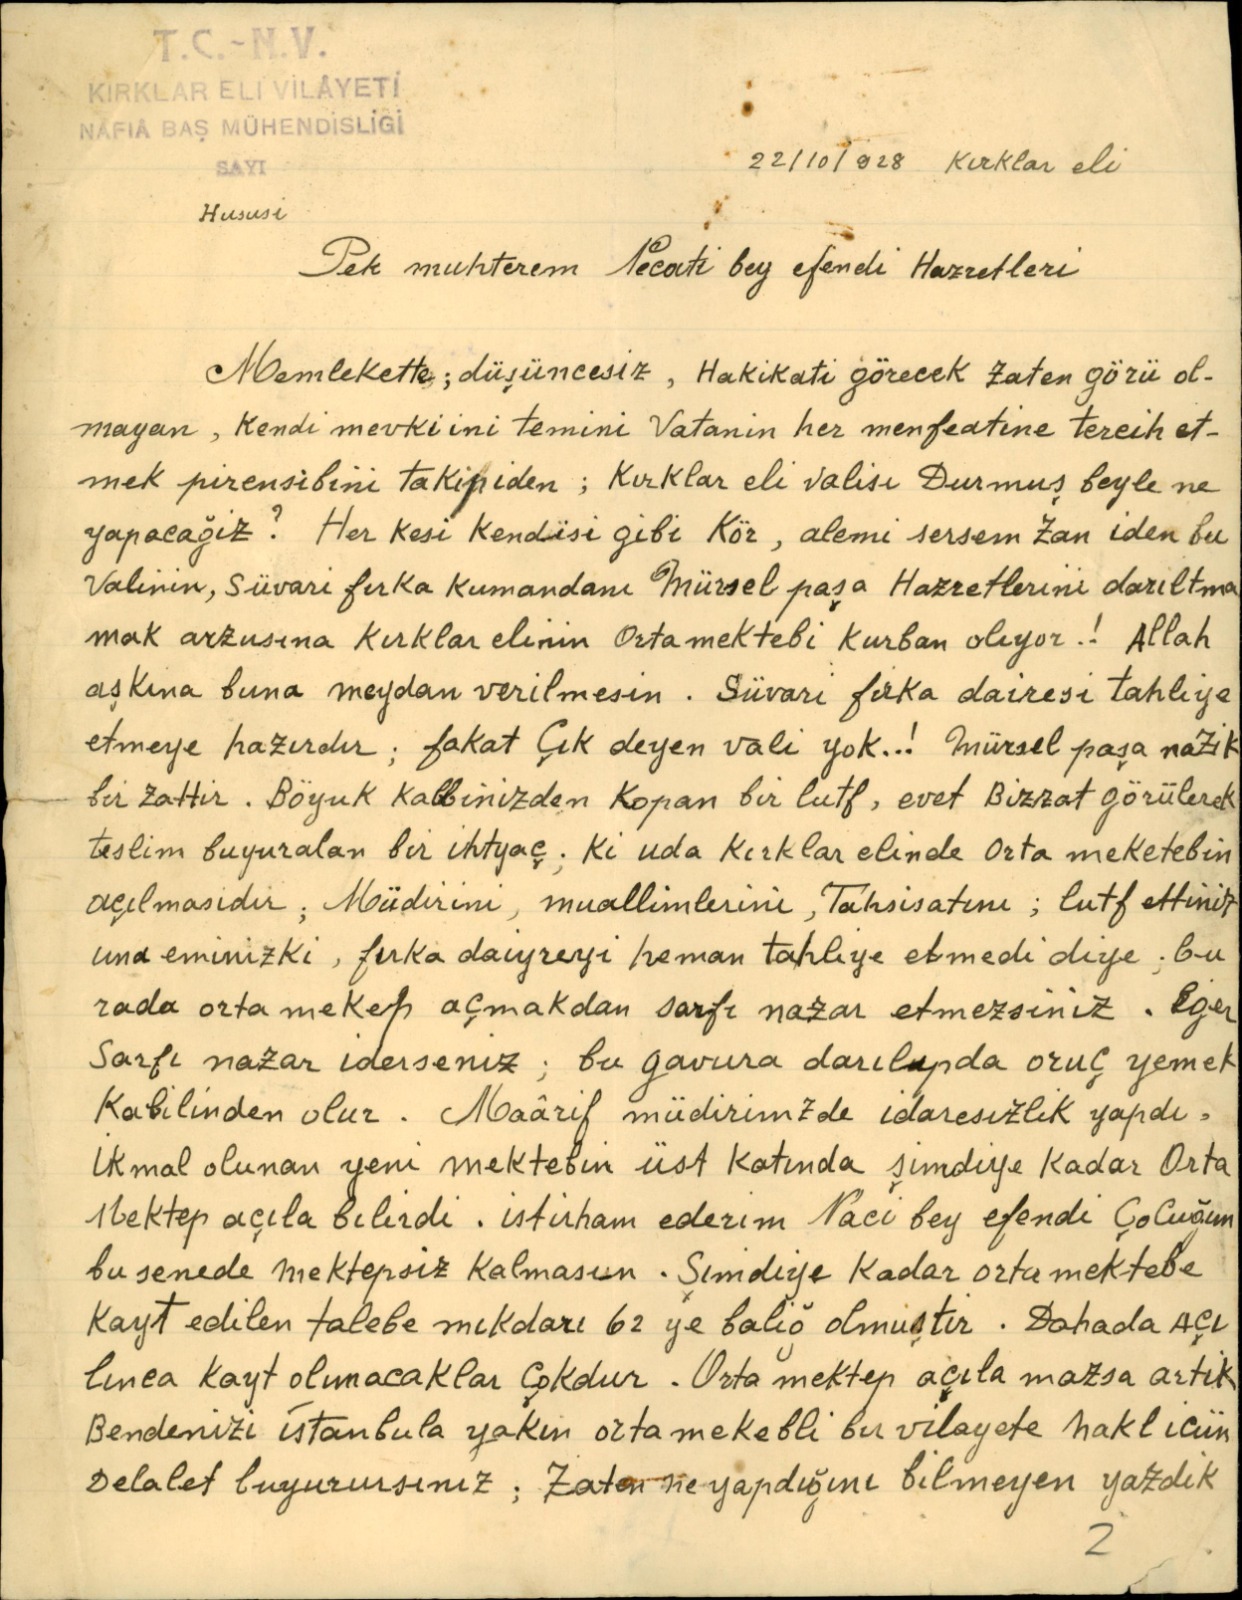 T.C.-N.V.
KIRKLAR ELİ VİLÂYETİ
NAFIÂ BAŞ MÜHENDİSLİĞİ
SAYI
22/10/928 Kırklar eli
Hususi
Pek muhterem Necati bey efendi Hazretleri
Memlekette; düşüncesiz, Hakikati görecek zaten görü ol-
mayan, Kendi mevkiini temini Vatanin her menfeatine tercih et-
mek pirensibini takipiden; Kırklar eli valisı Durmuş beyle ne
yapacağiz? Her kesi Kendisi gibi Kör, alemi sersem zan iden bu
Valinin, Süvari fırka Kumandanı Mürsel paşa Hazretlerini darıltma
mak arzusına Kırklar elinin Orta mektebi Kurban olıyor..! Allah
aşkına buna meydan verilmesin. Süvari firka dairesi tahliye
etmeye hazırdır; fakat Çık deyen vali yok..! Mürsel paşa nazik
bir zattir. Böyuk Kalbinizden Kopan bir lutf, evet Bizzat görülerek
teslim buyuralan bir ihtyaç; Ki uda Kırklar elinde Orta meketebin
açılmasidır; Müdirini, muallimlerini, Tahsisatını; lutf ettiniz
una eminizki, fırka daiyreyi heman tahliye etmedi diye; bu
rada orta mekep açmakdan sarfı nazar etmezsiniz. Eger
Sarfı nazar iderseniz; bu gavura darılupda oruç yemek
Kabilinden olur. Maârif müdirimzde idaresızlik yapdı.
İkmal olunan yeni mektebin üst katında şimdiye kadar Orta
Mektep açıla bilirdi. istirham ederim Naci bey efendi Çocuğum
bu senede mektepsiz Kalmasın. Şimdiye kadar orta mektebe
Kayt edilen talebe mıkdarı 62 ye baliğ olmuştir. Dahada açı
lınca Kayt olunacaklar Çokdur. Orta mektep açıla mazsa artik
Bendenizi istanbula yakın orta mekebli bir vilayete nakl içün
Delalet buyurursınız; Zaten ne yapdığını bilmeyen yazdik
2